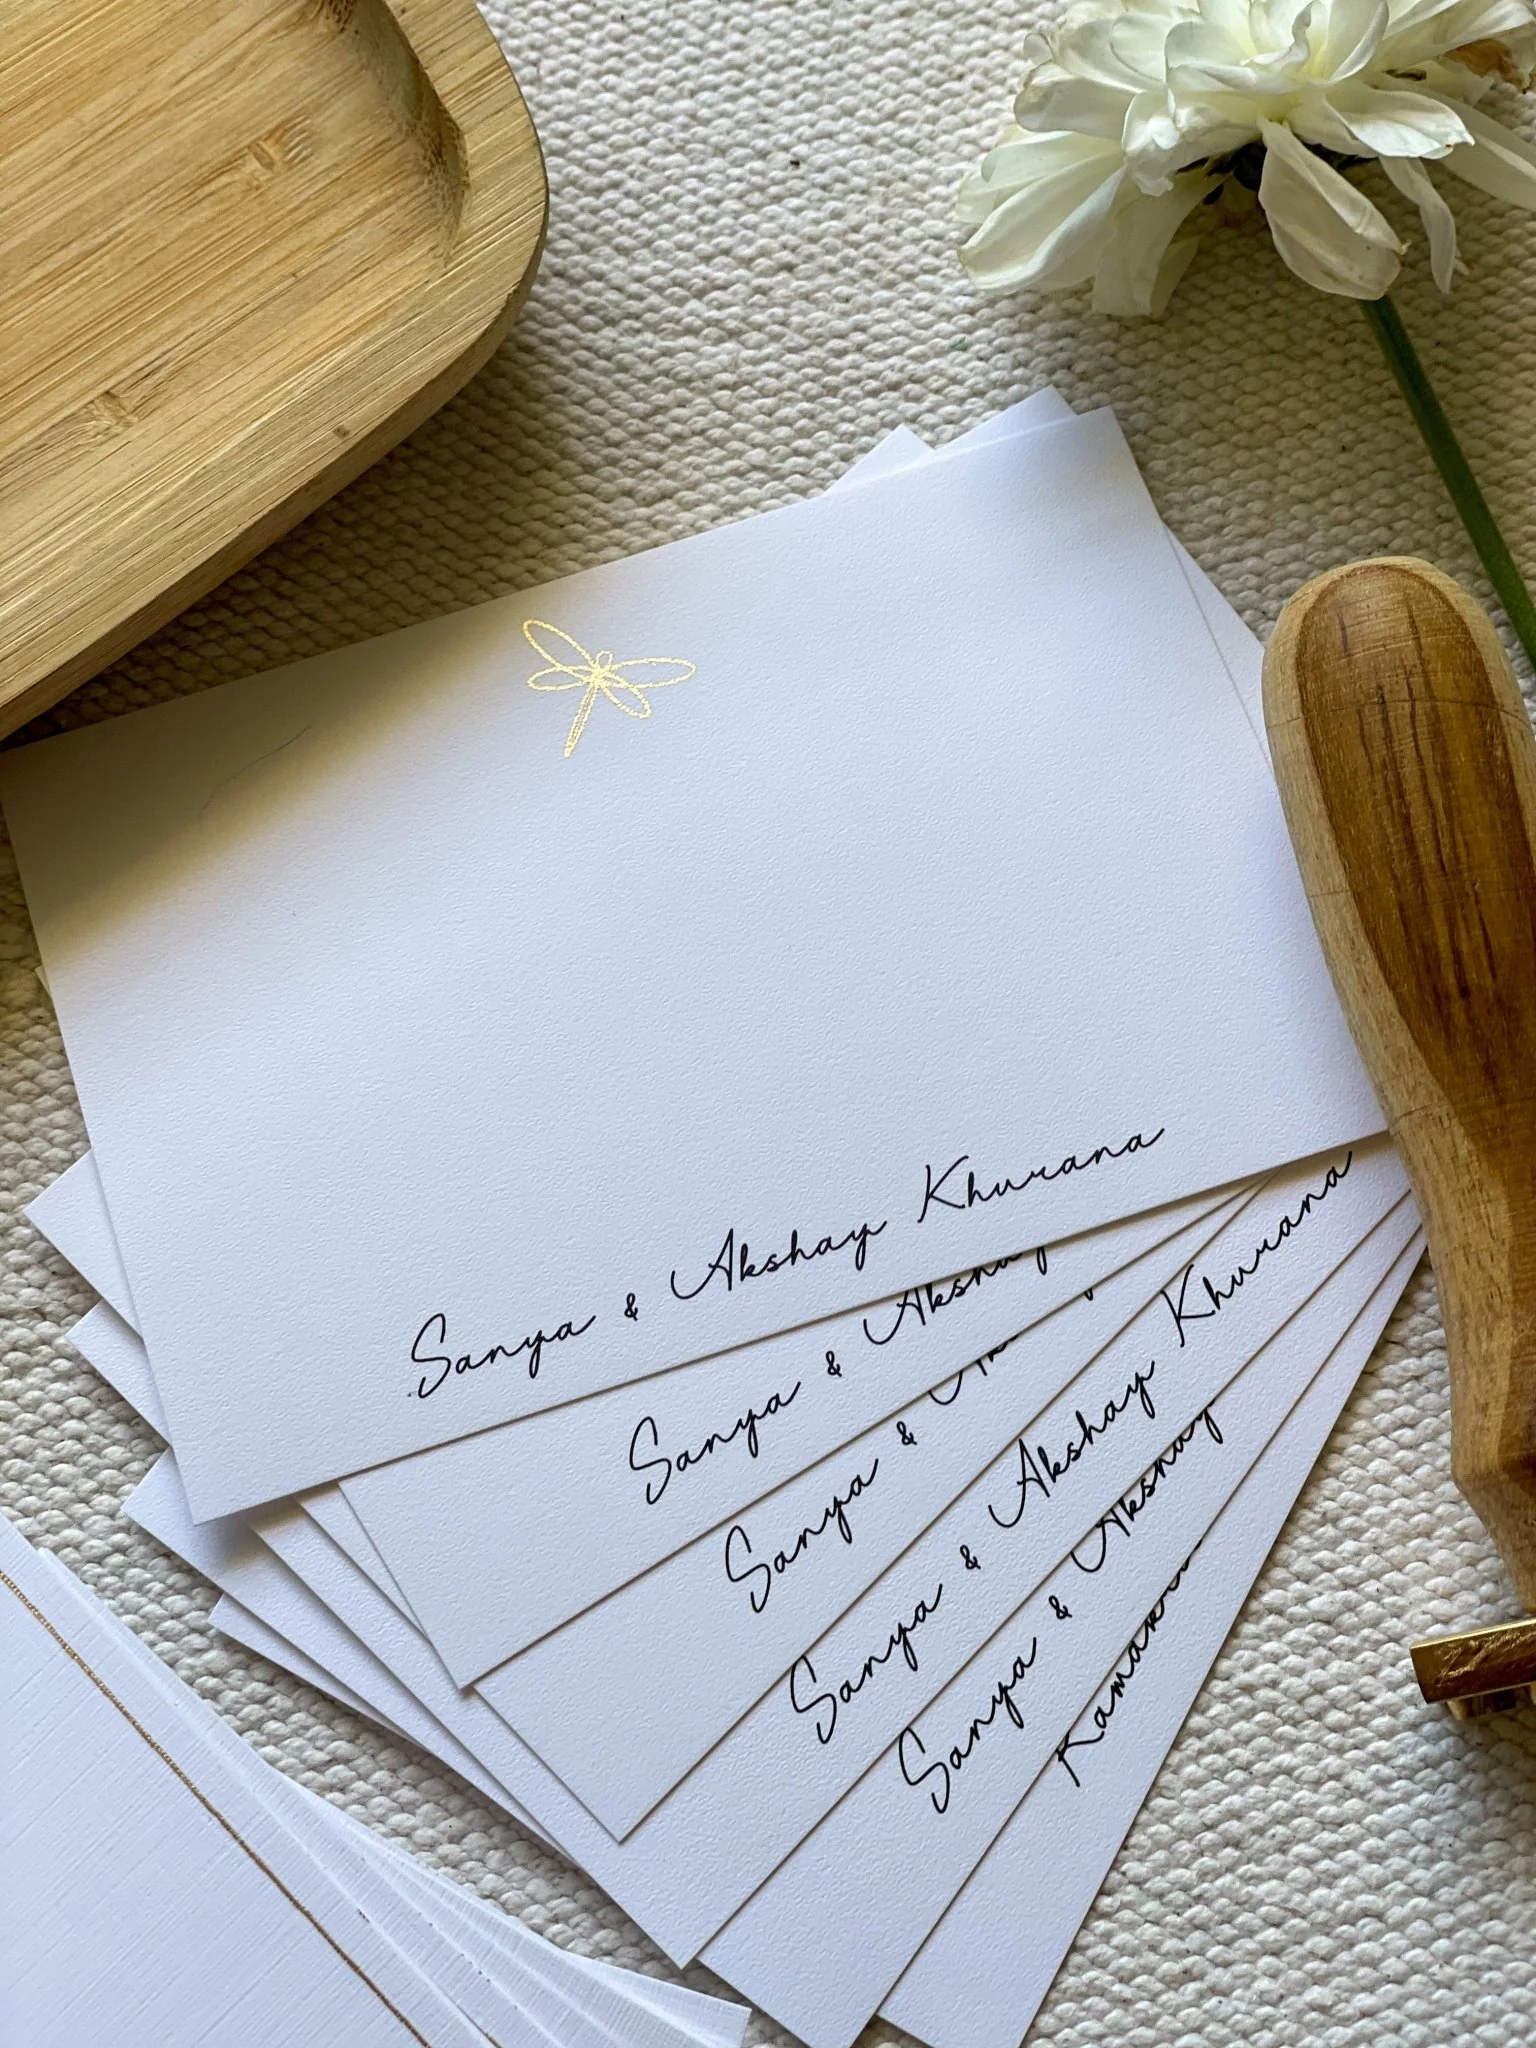 Sanya & Akshay Khurana
Sanya & Akshay
Sanya &
Sanya & Akshay Khurana
Sanya & Akshay